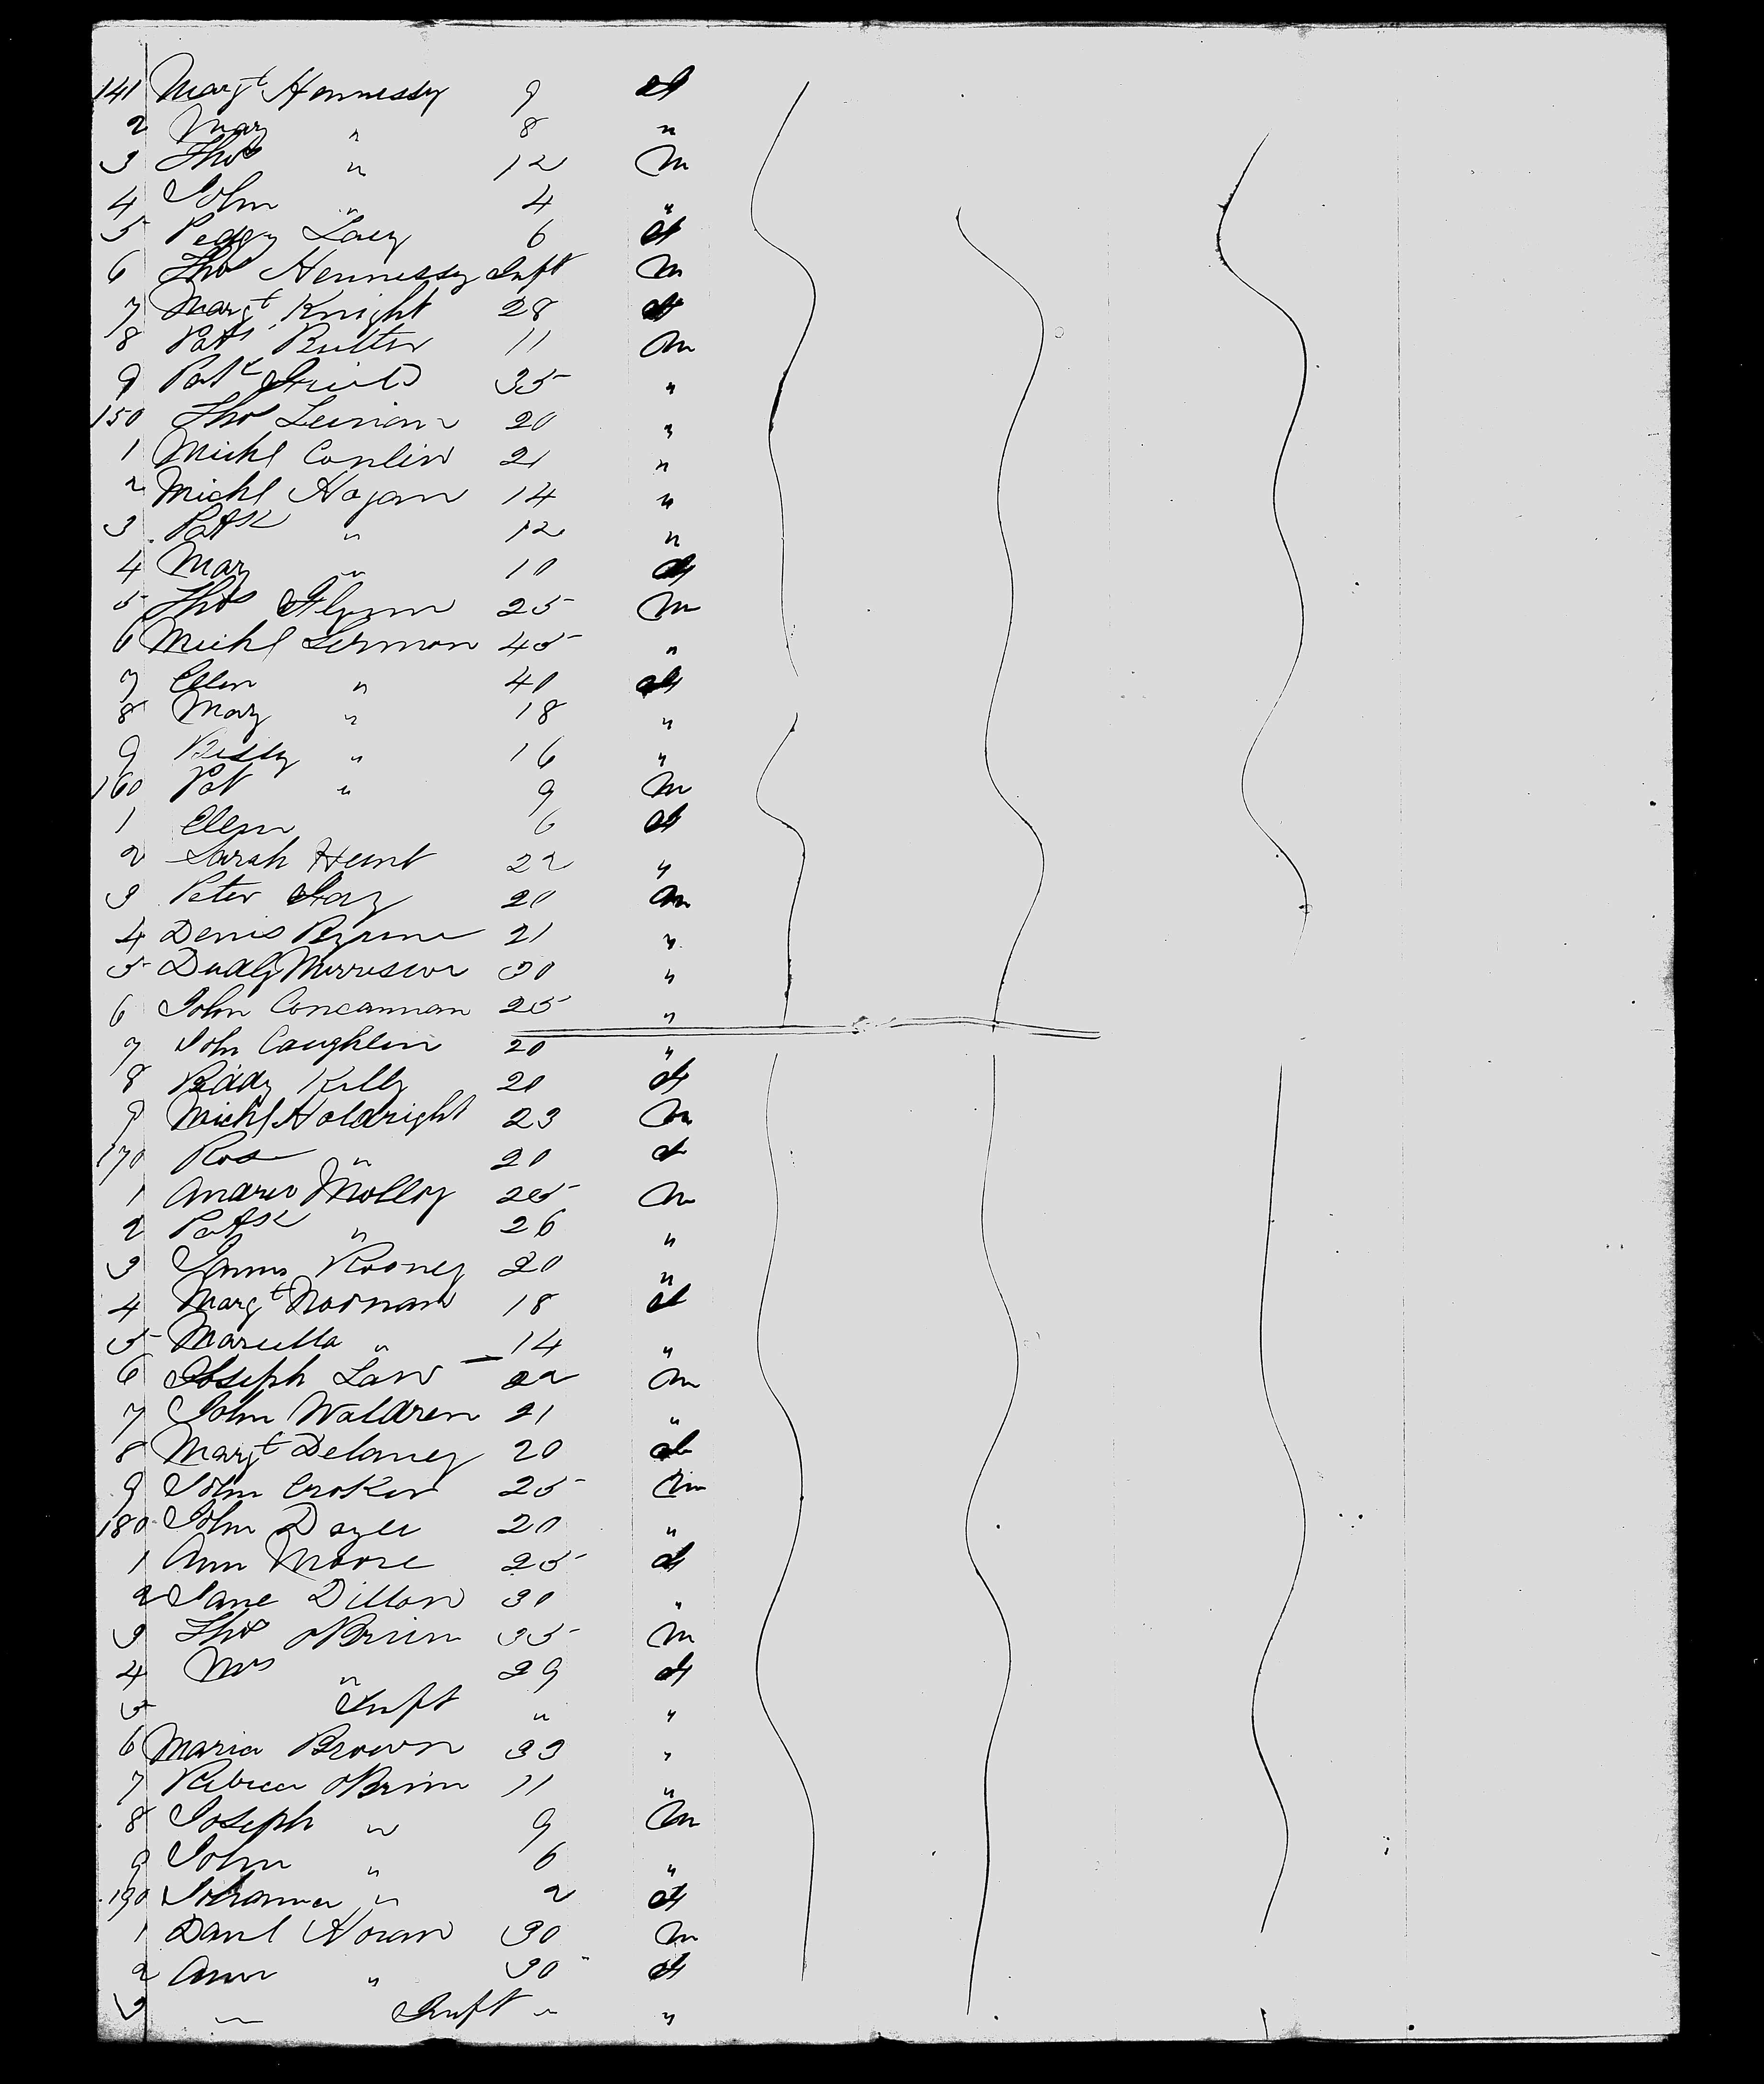 141 Margt Hennessy 9 f
2 Mary " 8 "
3 Thos " 12 m
4 John " 4 "
5 Peggy Lacy 6 f
6 Thos Hennessy Inft m
7 Margt Knight 28 f
8 Patk Butler 11 m
9 Patk 35 "
150 Thos 20 "
1 Michl Conlin 21 "
2 Michl Hogan 14 "
3 Patk " 12 "
4 Mary " 10 f
5 Thos Flynn 25 m
6 Michl Lermon 45 "
7 Ellen " 40 f
8 Mary " 18 "
9 Bessy " 16 "
160 Pat " 9 m
1 Ellen 6 f
2 Sarah Hunt 22 "
3 Peter 20 m
4 Denis Byrne 21 "
5 Dudly Morrison 30 "
6 John Concannan 25 "
7 John Caughlin 20 "
8 Biddy Kelly 20 f
9 Michl Holdright 23 m
170 Rose " 20 f
1 Andrew Molloy 25 m
2 Patk " 26 "
3 James Rooney 20 "
4 Margt Noonan 18 f
5 Marcella " 14 "
6 Joseph Law 22 m
7 John Waldren 21 "
8 Margt Delaney 20 f
9 John Croker 25 m
180 John Doyle 20 "
1 Ann Moore 25 f
2 Jane Dillon 30 "
3 Thos OBrien 35 m
4 Mrs " 29 f
5 Inft " "
6 Maria Brown 33 "
7 Rebecca OBrien 11 "
8 Joseph " 9 m
9 John " 6 "
190 Johanna " 2 f
1 Danl Horan 30 m
2 Ann " 30 f
3 " Inft " "